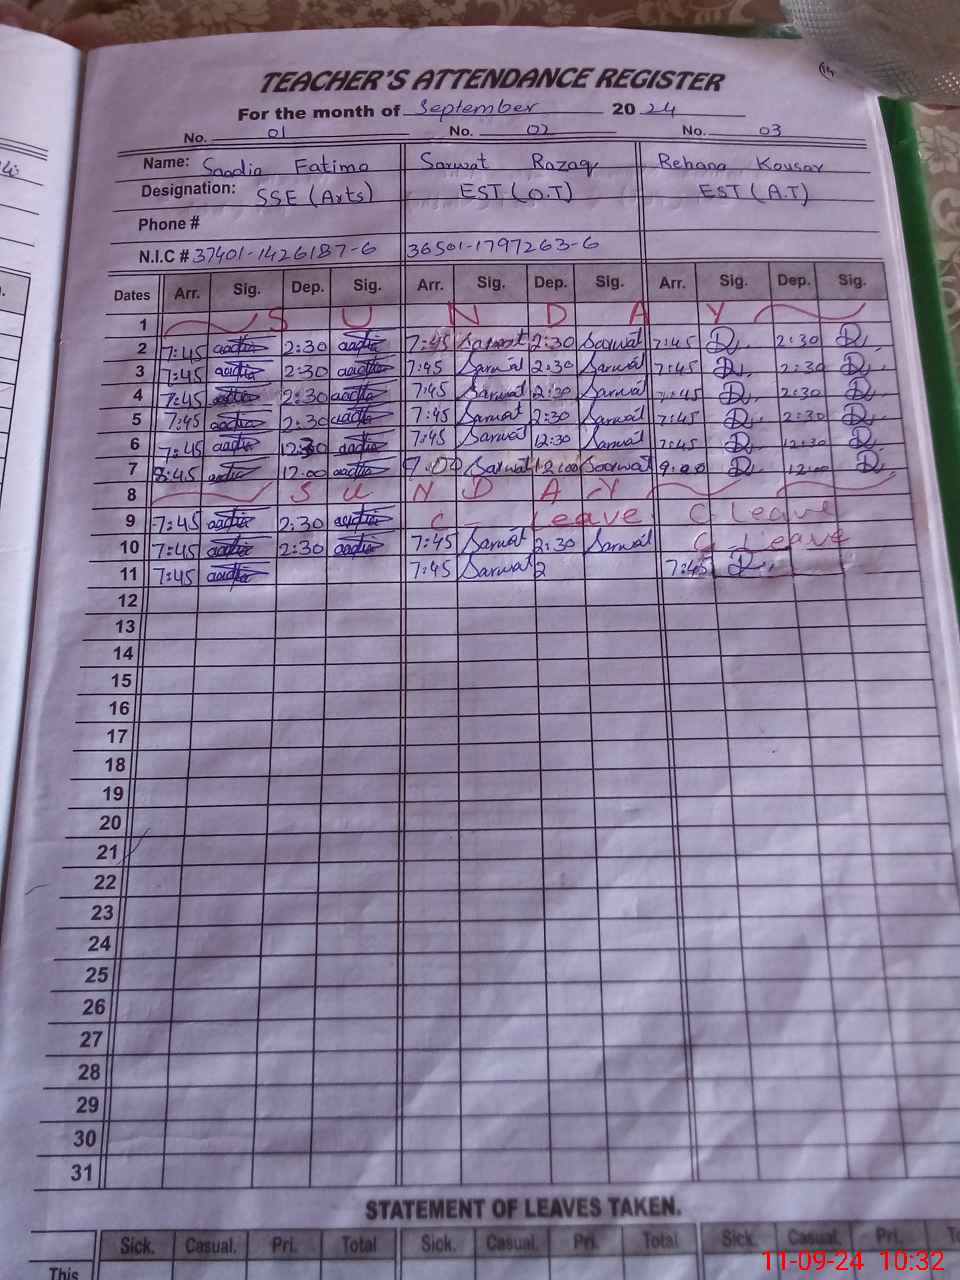 TEACHER'S ATTENDANCE REGISTER
For the month of September 2024
No. 01 No. 02 No. 03
Name: Saadia Fatima Sarwat Razaq Rehana Kousar
Designation: SSE (Arts) EST (O.T) EST (A.T)
Phone #
N.I.C # 37401-1426187-6 36501-1797263-6
Dates Arr. Sig. Dep. Sig. Arr. Sig. Dep. Sig. Arr. Sig. Dep. Sig.
1 S U N D A Y
2 7:45 2:30 7:45 Sarwat 2:30 Sarwat 7:45 2:30
3 7:45 2:30 7:45 Sarwat 2:30 Sarwat 7:45 2:30
4 7:45 2:30 7:45 Sarwat 2:30 Sarwat 7:45 2:30
5 7:45 2:30 7:45 Sarwat 2:30 Sarwat 7:45 2:30
6 7:45 12:30 7:45 Sarwat 12:30 Sarwat 7:45 12:30
7 8:45 12:00 Sarwat 12:00 Sarwat 9:00 12:00
8 S U N D A Y
9 7:45 2:30 C - Leave C Leave
10 7:45 2:30 7:45 Sarwat 2:30 Sarwat C Leave
11 7:45 7:45 Sarwat 2 7:45
12
13
14
15
16
17
18
19
20
21
22
23
24
25
26
27
28
29
30
31
STATEMENT OF LEAVES TAKEN.
Sick. Casual. Pri. Total Sick. Casual. Pri. Total Sick. Casual. Pri.
This
11-09-24 10:32